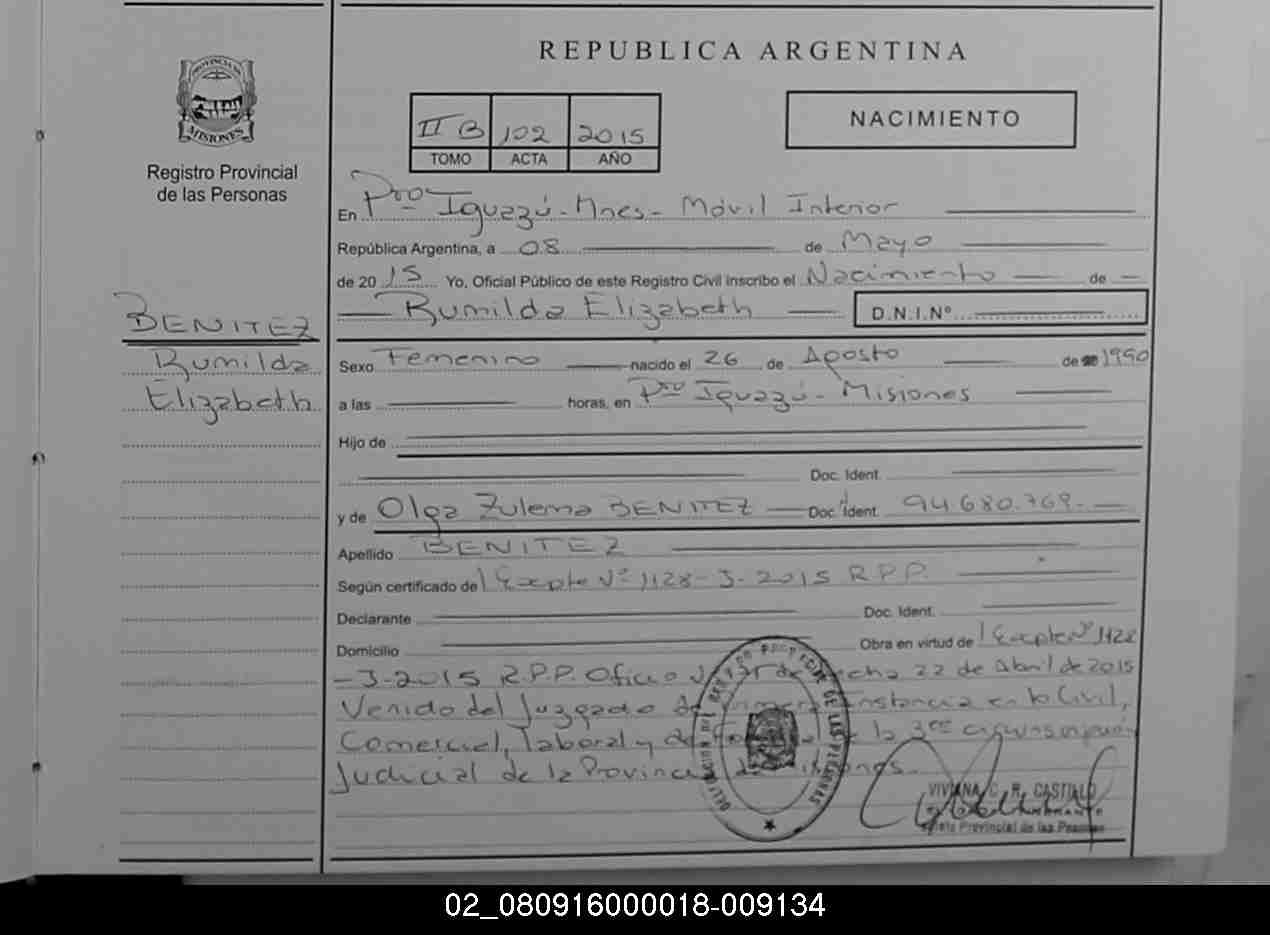 REPUBLICA ARGENTINA
PROVINCIA DE
MISIONES
Registro Provincial
de las Personas
II B 102 2015
TOMO ACTA AÑO
NACIMIENTO
En Pto Iguazú - Mnes - Móvil Interior
República Argentina, a 08 de Mayo
de 2015 Yo, Oficial Público de este Registro Civil inscribo el Nacimiento de
Rumilda Elizabeth D.N.I.Nº
BENITEZ
Rumilda
Elizabeth
Sexo Femenino nacido el 26 de Agosto de 1990
a las horas, en Pto Iguazú - Misiones
Hijo de
Doc. Ident.
y de Olga Zulema BENITEZ Doc. Ident. 94.680.769.-
Apellido BENITEZ
Según certificado de Expte Nº 1128-J-2015 R.P.P.
Declarante Doc. Ident.
Domicilio Obra en virtud de Expte Nº 1128
-J-2015 R.P.P. Oficio de fecha 22 de Abril de 2015
Venido del Juzgado de Primera Instancia en lo Civil,
Comercial, laboral y de Familia de la 3ra circunscripción
Judicial de la Provincia de Misiones.
DELEGACION DEL REGISTRO PROVINCIAL DE LAS PERSONAS
VIVIANA C. R. CASTILLO
Registro Provincial de las Personas
02_080916000018-009134